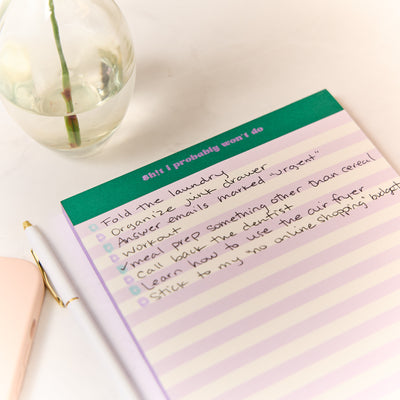 Sh!t I probably won't do
Fold the laundry
Organize junk drawer
Answer emails marked "urgent"
Workout
meal prep something other than cereal
Call back the dentist
Learn how to use the air fryer
Stick to my "no online shopping" budget